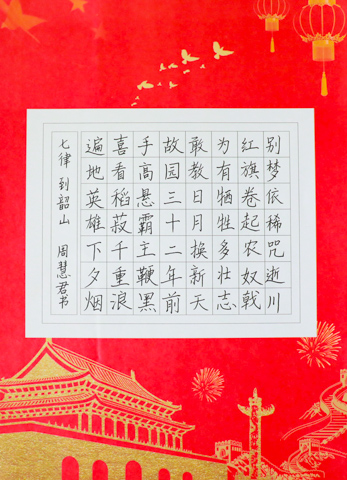 别梦依稀咒逝川
红旗卷起农奴戟
为有牺牲多壮志
敢教日月换新天
故园三十二年前
手高悬霸主鞭黑
喜看稻菽千重浪
遍地英雄下夕烟
七律 到韶山 周慧君书